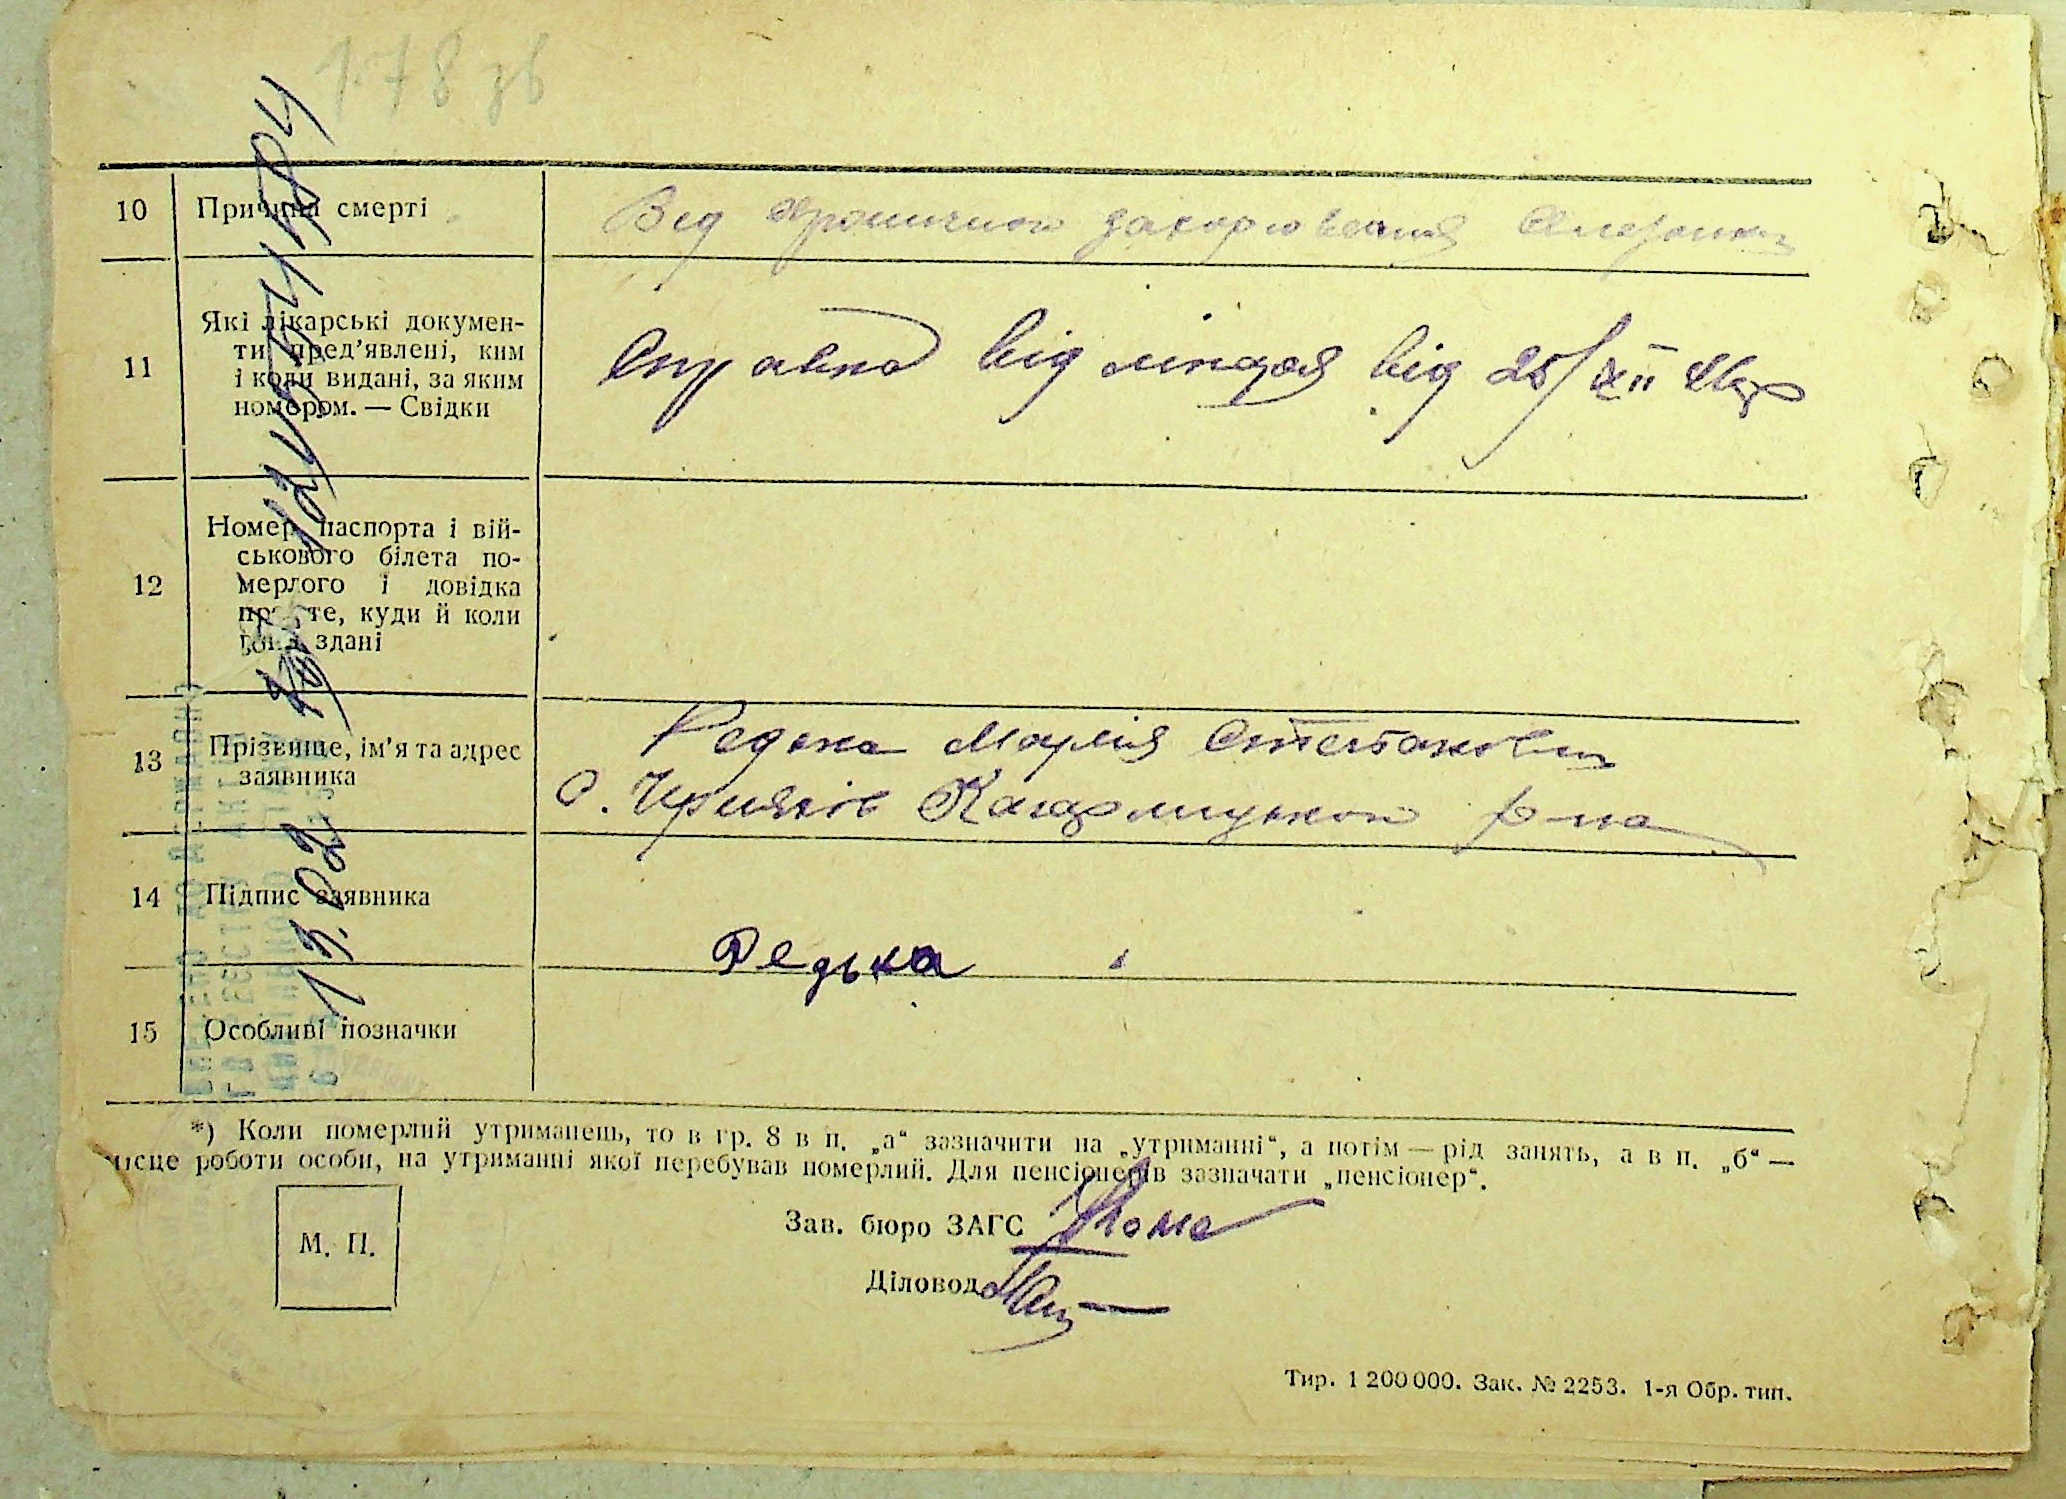 178 зв
10 Причина смерті
Від хроничного захорювання
11 Які лікарські докумен-
ти пред’явлені, ким
і коли видані, за яким
номером. — Свідки
Справка від лікаря від 25/XII
12 Номер паспорта і вій-
ськового білета по-
мерлого і довідка
про те, куди й коли
вони здані
13 Прізвище, ім’я та адрес
заявника
Редька Марія Степановна
с. Черняхів Кагарлицького р-на
14 Підпис заявника
Редька
15 Особливі позначки
*) Коли померлий утриманець, то в гр. 8 в п. „а“ зазначити на „утриманні“, а потім — рід занять, а в п. „б“ —
місце роботи особи, на утриманні якої перебував померлий. Для пенсіонерів зазначати „пенсіонер“.
Зав. бюро ЗАГС
М. П.
Діловод
Тир. 1 200 000. Зак. № 2253. 1-я Обр. тип.